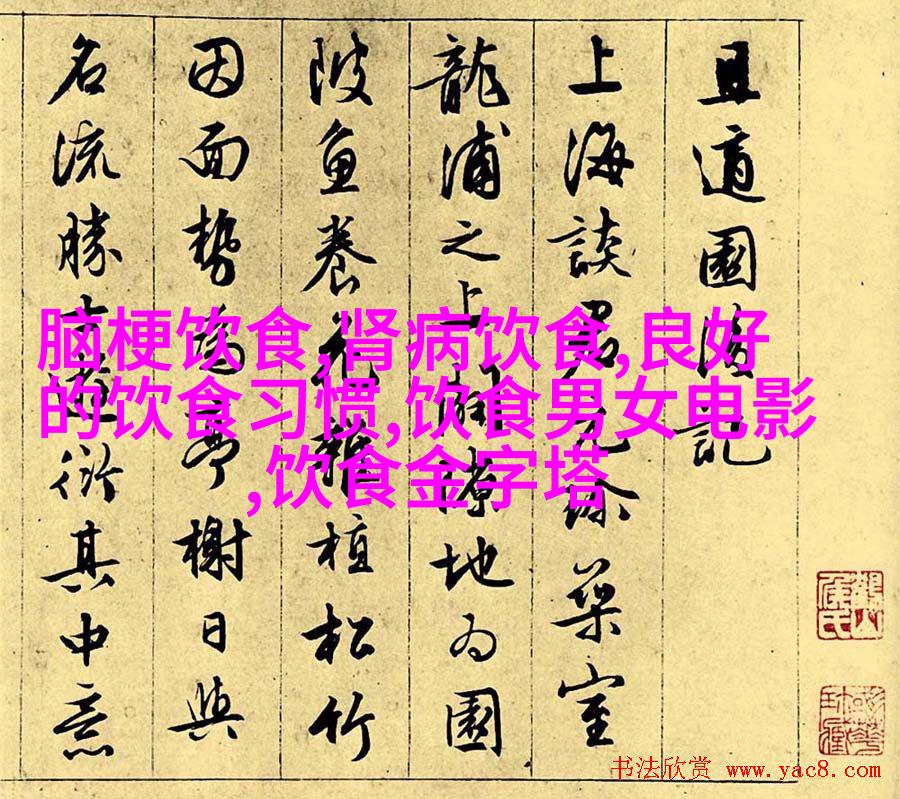 且適園記
上海談君元築室
龍浦之上隙地为園
陂魚養花雜植松竹
因面勢為亭榭日與
名流勝士遊衍其中意
脑梗饮食,肾病饮食,良好
的饮食习惯,饮食男女电影
,饮食金字塔
书法欣赏 www.yac8.com